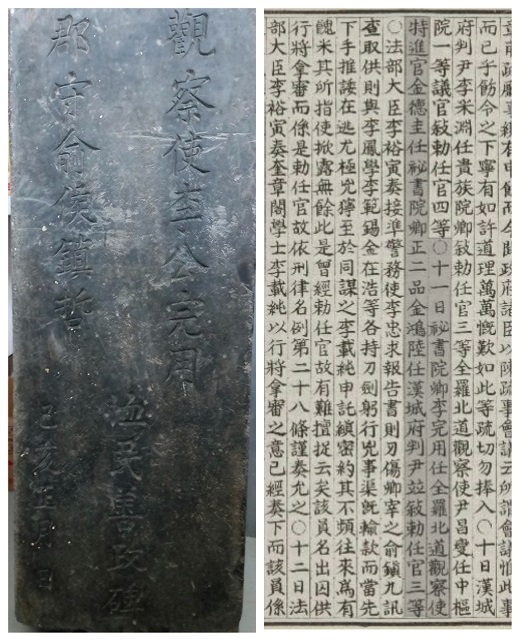 觀察使李公完用
郡守兪侯鎭哲
民善政碑
己亥 月 日
有申飭而今聞政府諸臣以陳疏事會議云所謂會議惟此事
而已乎飭令之下寧有如許道理萬萬慨歎如此等疏切勿捧入○十日漢城
府判尹李采淵任貴族院卿敍勅任官三等全羅北道觀察使尹昌燮任中樞
院一等議官敍勅任官四等○十一日祕書院卿李完用任全羅北道觀察使
特進官金德圭任祕書院卿正二品金鴻陸任漢城府判尹竝敍勅任官三等
○法部大臣李裕寅奏接準警務使李忠求報告書則刃傷卿宰之兪鎭九訊
查取供則與李鳳學李範錫金在浩等各持刀劍躬行兇事渠旣輸款而當先
下手推諉在逃尤極兇獰至於同謀之李載純申託縝密約其不頻往來爲有
醜末其所指使掀露無餘此是曾經勅任官故有難擅捉云矣該員名出囚供
行將拿審而係是勅任官故依刑律名例第二十八條謹奏允之○十二日法
部大臣李裕寅奏奎章閣學士李載純以行將拿審之意已經奏下而該員係